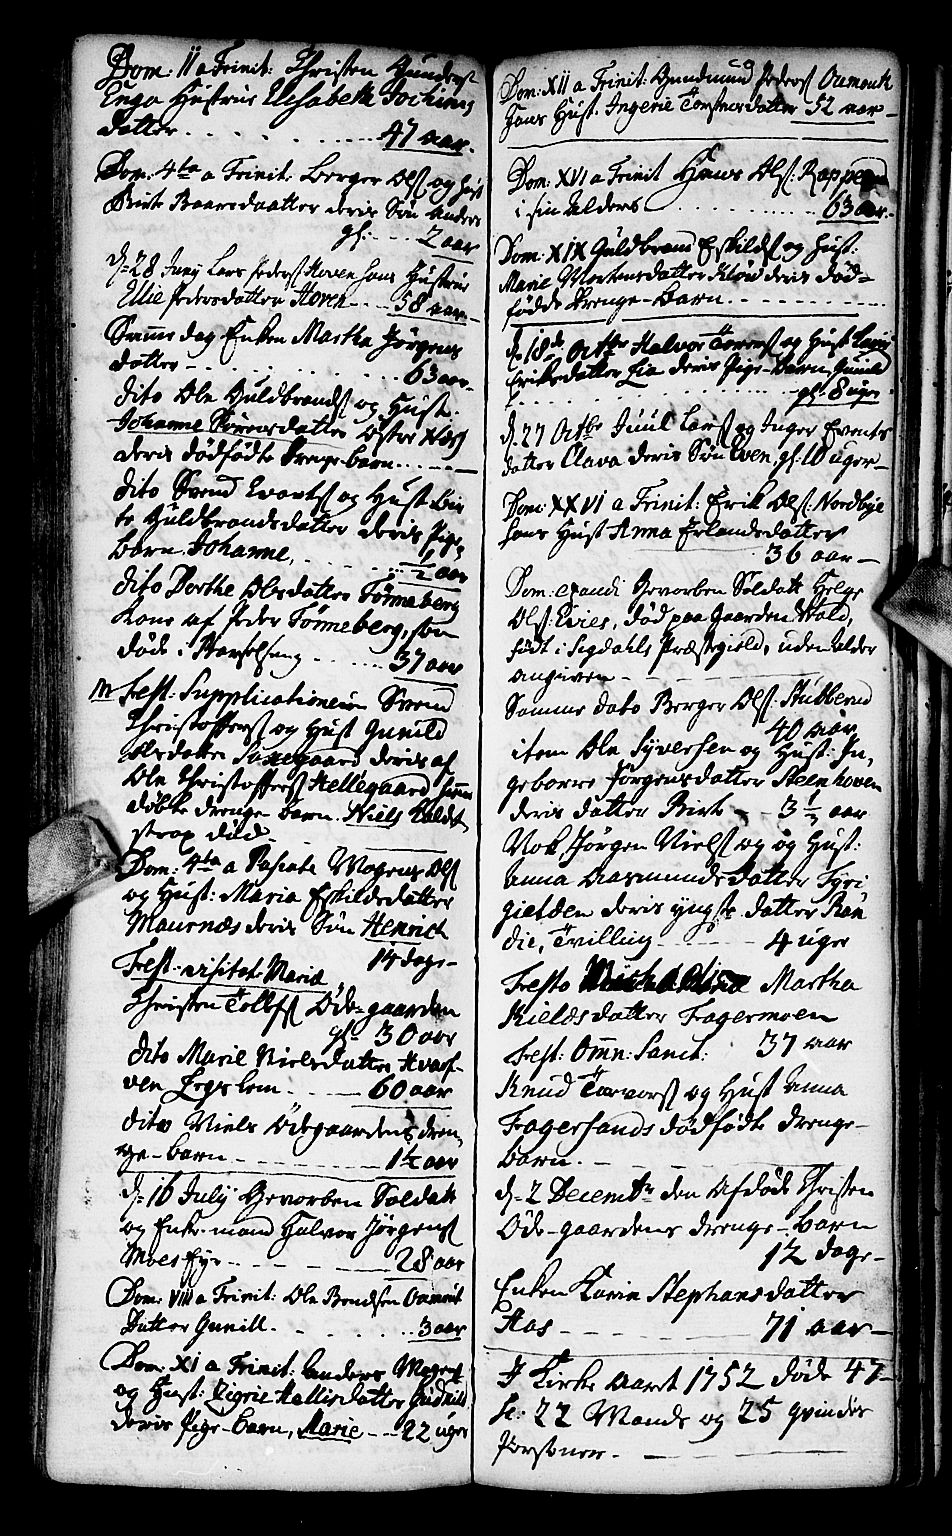 Dom: 11 a Trinit: Christen Gunders
Enga Hustrue Elisabeth Jochims
datter. . . . . . . . 47 aar.
Dom: 4ta a Trinit: Berger Ols og Hust
Birte Baarsdaatter deris Søn Anders
gl: . . . 2 aar
d. 28 Juny Lars Peders Hoven hans Hustrue
Ellie Pedersdatter Hoven . . 58 aar
Samme dag Enken Martha Jørgens
datter . . . . . . 63 aar.
dito Ole Guldbrands og Hust.
Johanne Sørensdatter Østre Næs
deris dødfødte Drenge barn. . .
dito Svend Evarts og Hust Bir
te Guldbrandsdatter deris Pige
barn Johanne, . . . . 1/2 aar
dito Dorthe Olsdatter Tønneberg
Kone af Peder Tønneberg, som
døde i Barselseng . . . 37 aar
M Fest: Supplicationum Svend
Christoffers og Hust Gunild
Olsdatter deris af
Ole Christoffers Hellegaard hiem
døbte drenge barn. Niels kaldet
strax død.
Dom: 4ta a Pascate Mogens Ols
og Hust: Maria Eskildsdatter
Mauernæs deris Søn Henrich
14 dage -
Fest: visitat: Mariæ
Christen Tollefs Øde-gaarden
gl: 30 aar
dito Marie Nielsdatter Hvarf-
ven Legslem . . . 60 aar
dito Niels Ødegaardens dren,
ge-barn . . . . 1 1/2 aar
d. 16 July Gevorben Soldat
og Enke-mand Halvor Jørgens
Moes Eye . . . . 28 aar
Dom: VIII a Trinit: Ole Bendsen
Datter Gunill. . . . . . 3 aar
Dom: XI a Trinit: Anders Mogens
og Hust: Zigrie Hallisdatter
deris Pige-barn, Marie - - 22 uger
Dom: XII a Trinit: Gundmund Peders
Hans Hust. Ingerie Torstensdatter 52 aar -
Dom: XVI a Trinit Hans Ols: Rappen
i sin Alders . . . . . . . . 63 aar.
Dom: XIX Guldbrand Eskilds og Hust:
Marie Mortensdatter Kløv deris Død-
fødde Drenge-barn. . . . . .
d. 18de Octbr Halvor Torers og Hust
Eriksdatter Lia deris Pige-barn, Gunild
. . . . . . . . gl: 8 uger
d. 27 Octbr Juul Lars og Inger Events
datter Clava deris Søn Even, gl. 10 uger -
Dom: XXVI a Trinit: Erik Ols: Nordbye
hans Hust Anna Erlandsdatter
36 aar -
Dom: exaudi Gevorben Soldatt Helge
Ols Evies, død paa Gaarden Wold,
født i Sigdahls Præstegield, uden Alder
angiven - - - -
Samme dato Berger Ols: Stubberud
40 aar
item Ole Syversen og Hust: In,
geborre Jørgensdatter Steenhoven
deris datter Birte - - 3 1/2 aar
Nok Jørgen Niels og og Hust:
Anna Aasmundsdatter Fyri
gietden deris yngste datter Ran
die, Tvilling - - - - 4 uger
Festo Martha
Kieldsdatter Fagermoen
Fest: Omn: Sanct: 37 aar
Knud Torvors og Hust Anna
Fagersands dødfødte drenge-
barn. - - - -
d. 2 Decembr den Afdøde Christen
Øde-gaardens drenge-barn
12 dage -
Enken Karin Stephansdatter
Aas - - - - 71 aar -
I Kirke Aaret 1752 døde 47 -
sc: 22 Mands og 25 qvindes
Personer. -